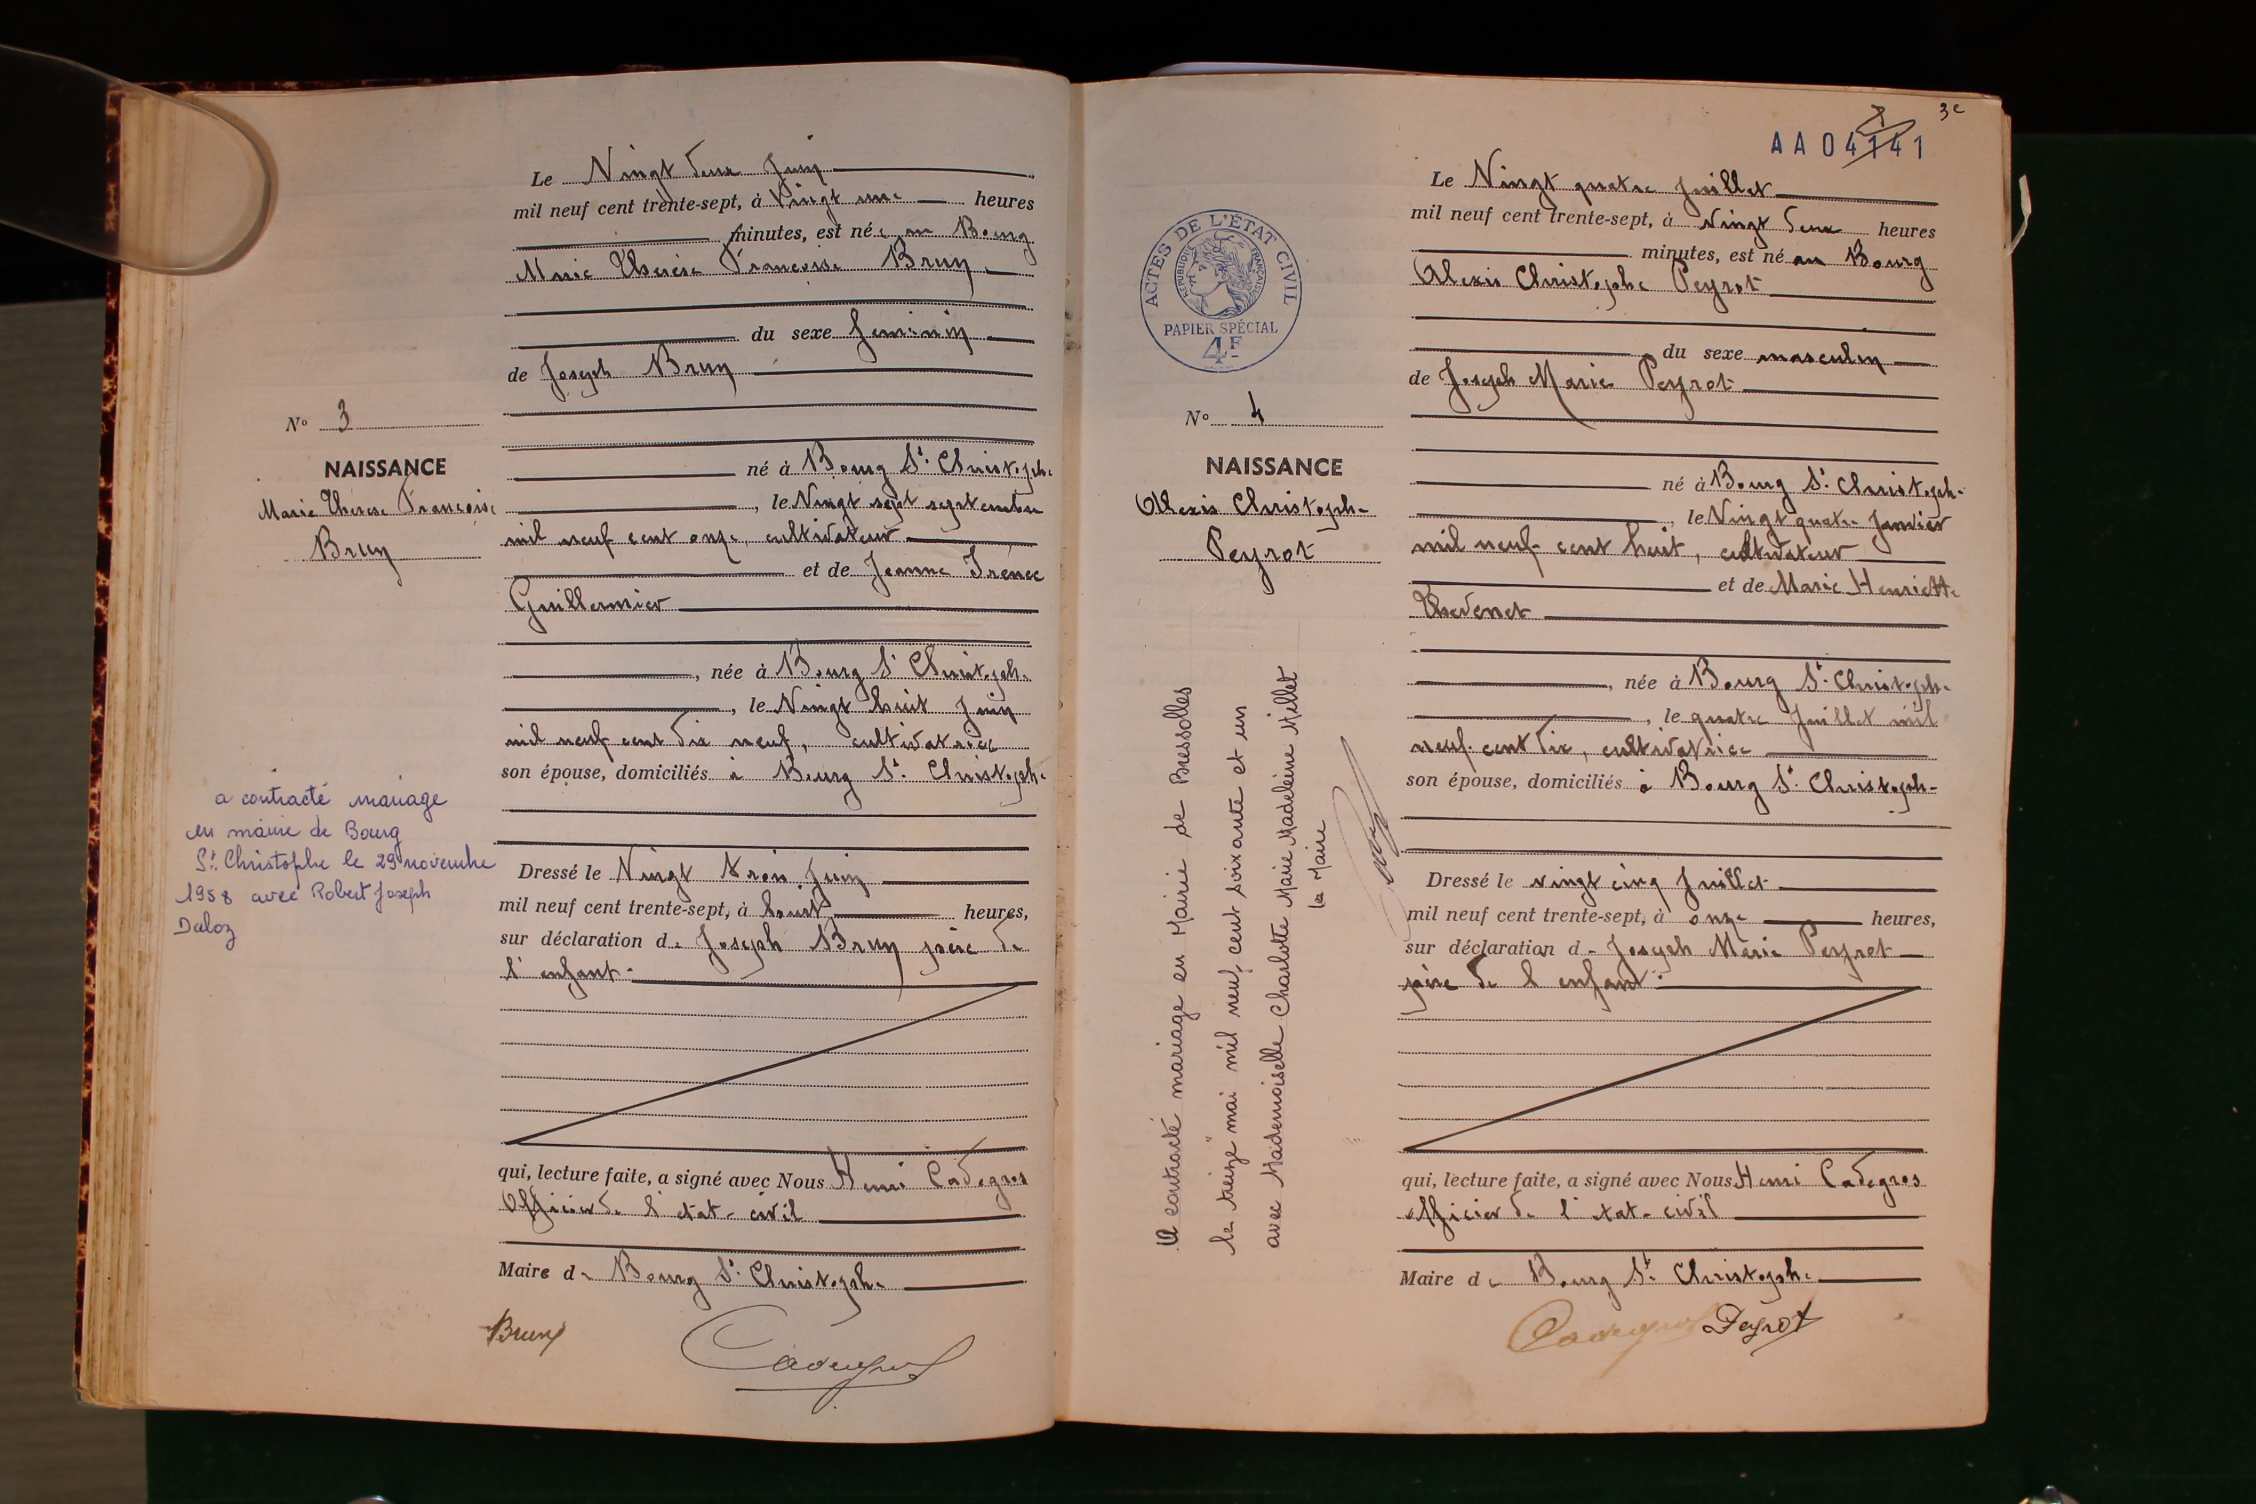 Le Vingt deux Juin
mil neuf cent trente-sept, à Vingt une heures
minutes, est née au Bourg
Marie Thérèse Françoise Brun
du sexe féminin
de Joseph Brun
né à Bourg St. Christophe
, le Vingt sept septembre
mil neuf cent onze, cultivateur
et de Jeanne Irénée
Guillermier
, née à Bourg St Christophe
, le Vingt huit Juin
mil neuf cent dix neuf, cultivatrice
son épouse, domiciliés à Bourg St. Christophe
Dressé le Vingt trois Juin
mil neuf cent trente-sept, à huit heures,
sur déclaration de Joseph Brun père de
l'enfant.
qui, lecture faite, a signé avec Nous Henri Cadegros
Officier de l'état-civil
Maire de Bourg St. Christophe
Brun
Cadegros
N° 3
NAISSANCE
Marie Thérèse Françoise
Brun
a contracté mariage
en mairie de Bourg
St. Christophe le 29 novembre
1958 avec Robert Joseph
Daloz
3e
AA 04141
ACTES DE L'ÉTAT CIVIL
RÉPUBLIQUE FRANÇAISE
PAPIER SPÉCIAL
4F
N° 4
NAISSANCE
Alexis Christophe
Peyrot
A contracté mariage en Mairie de Bressolles
le "treize" mai mil neuf cent soixante et un
avec Mademoiselle Charlotte Marie Madeleine Millet
le Maire
Le Vingt quatre Juillet
mil neuf cent trente-sept, à Vingt deux heures
minutes, est né au Bourg
Alexis Christophe Peyrot
du sexe masculin
de Joseph Marie Peyrot
né à Bourg St. Christophe
, le Vingt quatre Janvier
mil neuf cent huit, cultivateur
et de Marie Henriette
Thevenet
, née à Bourg St. Christophe
, le quatre Juillet mil
neuf cent dix, cultivatrice
son épouse, domiciliés à Bourg St. Christophe
Dressé le vingt cinq Juillet
mil neuf cent trente-sept, à onze heures,
sur déclaration de Joseph Marie Peyrot
père de l'enfant.
qui, lecture faite, a signé avec Nous Henri Cadegros
officier de l'état-civil
Maire de Bourg St. Christophe
Cadegros Peyrot